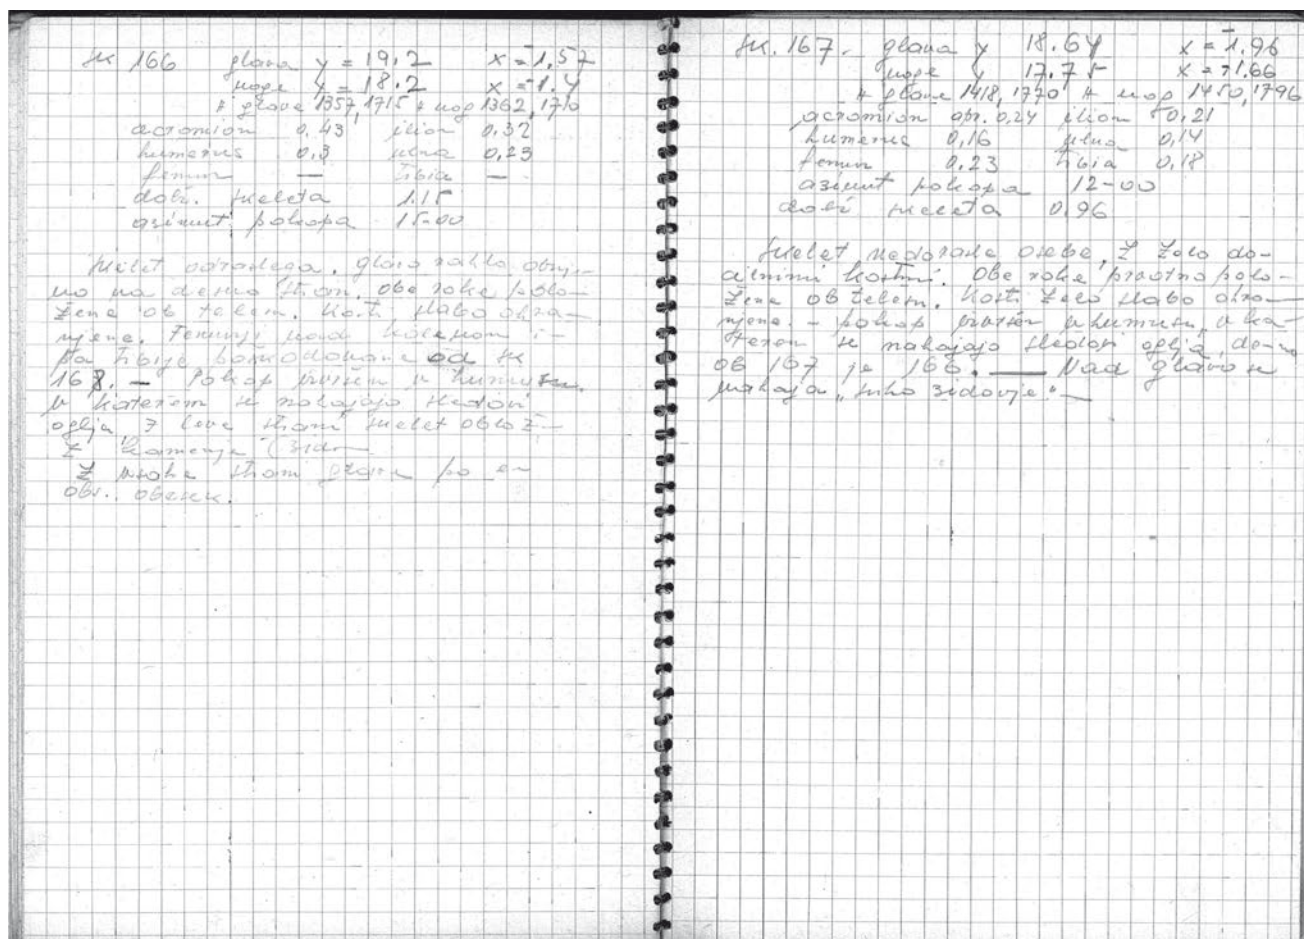 sk 166 glava y = 19.2 x = -1.57
noge y = 18.2 x = -1.4
# glave 1357, 1715 # nog 1362, 1710
acromion 0.43 ilion 0,32
humerus 0.3 ulna 0,23
femur — tibia —
dolž. skeleta 1.15
azimut pokopa 15-00
Skelet odraslega. glava rahlo obrnje-
no na desno stran. Obe roke polo-
žene ob telesu. Kosti slabo ohra-
njene. Femurji nad kolenom i-
pa tibije poškodovane od sk
168. — Pokop izvršen v humusu.
v katerem se nahajajo sledovi
oglja z leve strani skelet oblož-
z kamenja (zido
Z vsake strani glave po en
obs. obesek.
sk. 167 - glava y 18.64 x = -1.96
noge y 17.75 x = -1.66
# glave 1418, 1770 # nog 1450, 1796
acromion apr. 0,24 ilion 0,21
humerus 0,16 ulna 0,14
femur 0.23 tibia 0,18
azimut pokopa 12-00
dolž skeleta 0,96
Skelet nedorasle osebe, z zelo do-
cilnimi kostmi. Obe roke prvotno polo-
žene ob telesu. Kosti zelo slabo ohra-
njene. - pokop izvršen v humusu, v ka-
terem se nahajajo sledovi oglja,
ob 167 je 166. — Nad glavo se
nahaja "suho zidovje." —